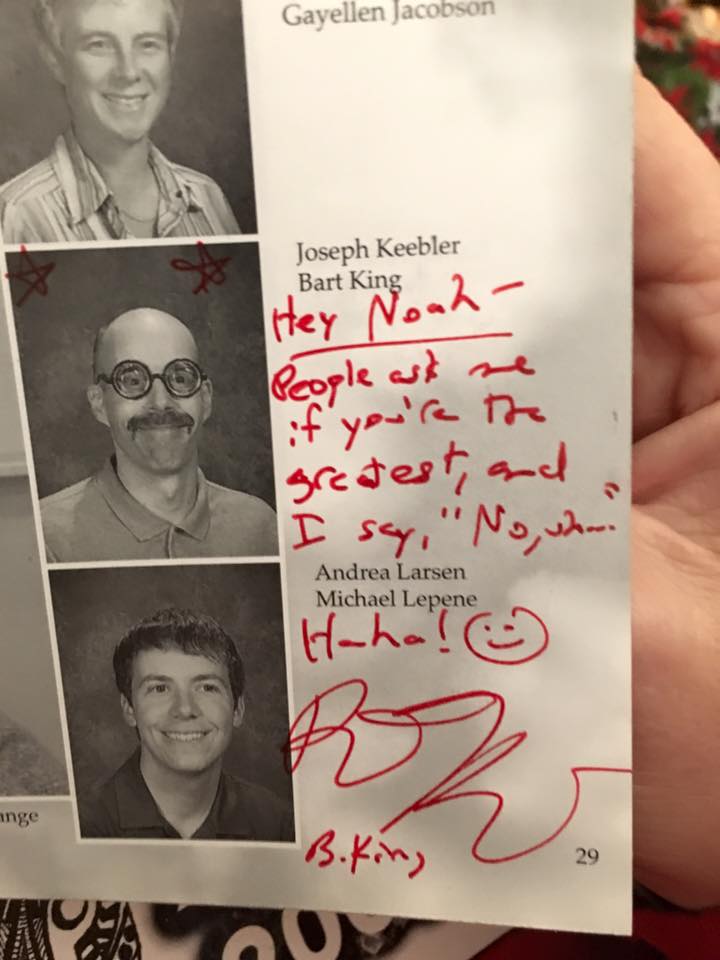 Gayellen Jacobson
Joseph Keebler
Bart King
Hey Noah-
People ask me
if you're the
greatest, and
I say, "No, uh..."
Andrea Larsen
Michael Lepene
Haha!
B. King
ange
29